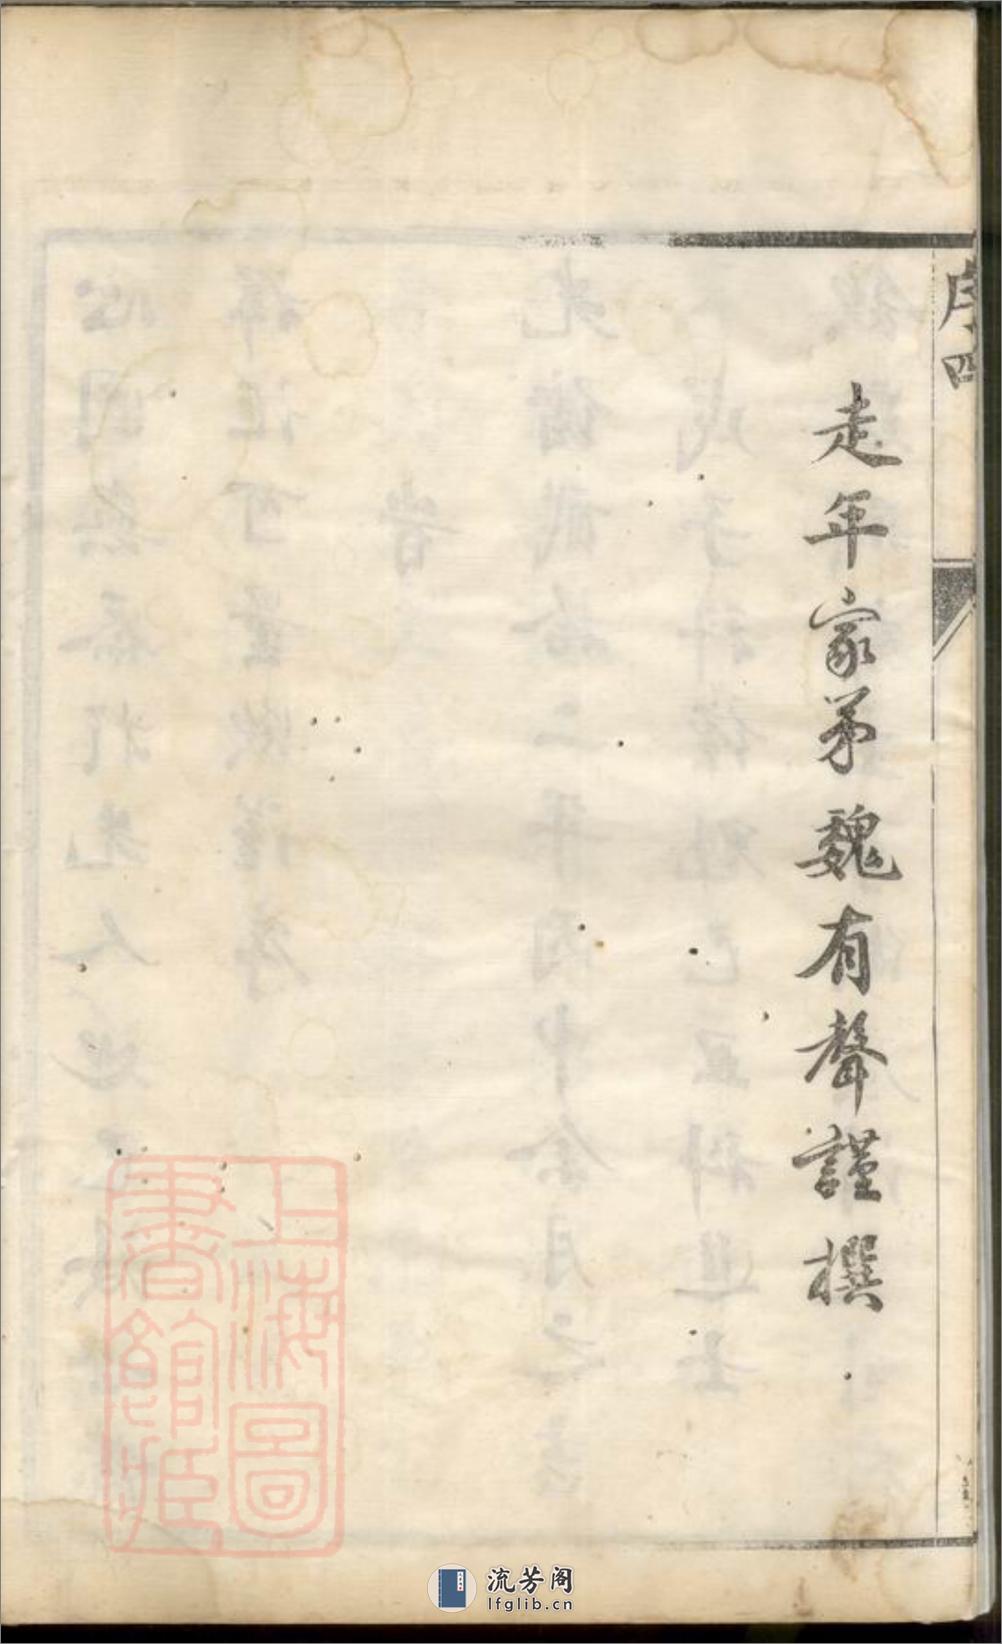 序四
走年家弟魏有聲謹撰
上海圖
書館藏
流芳阁
lfglib.cn